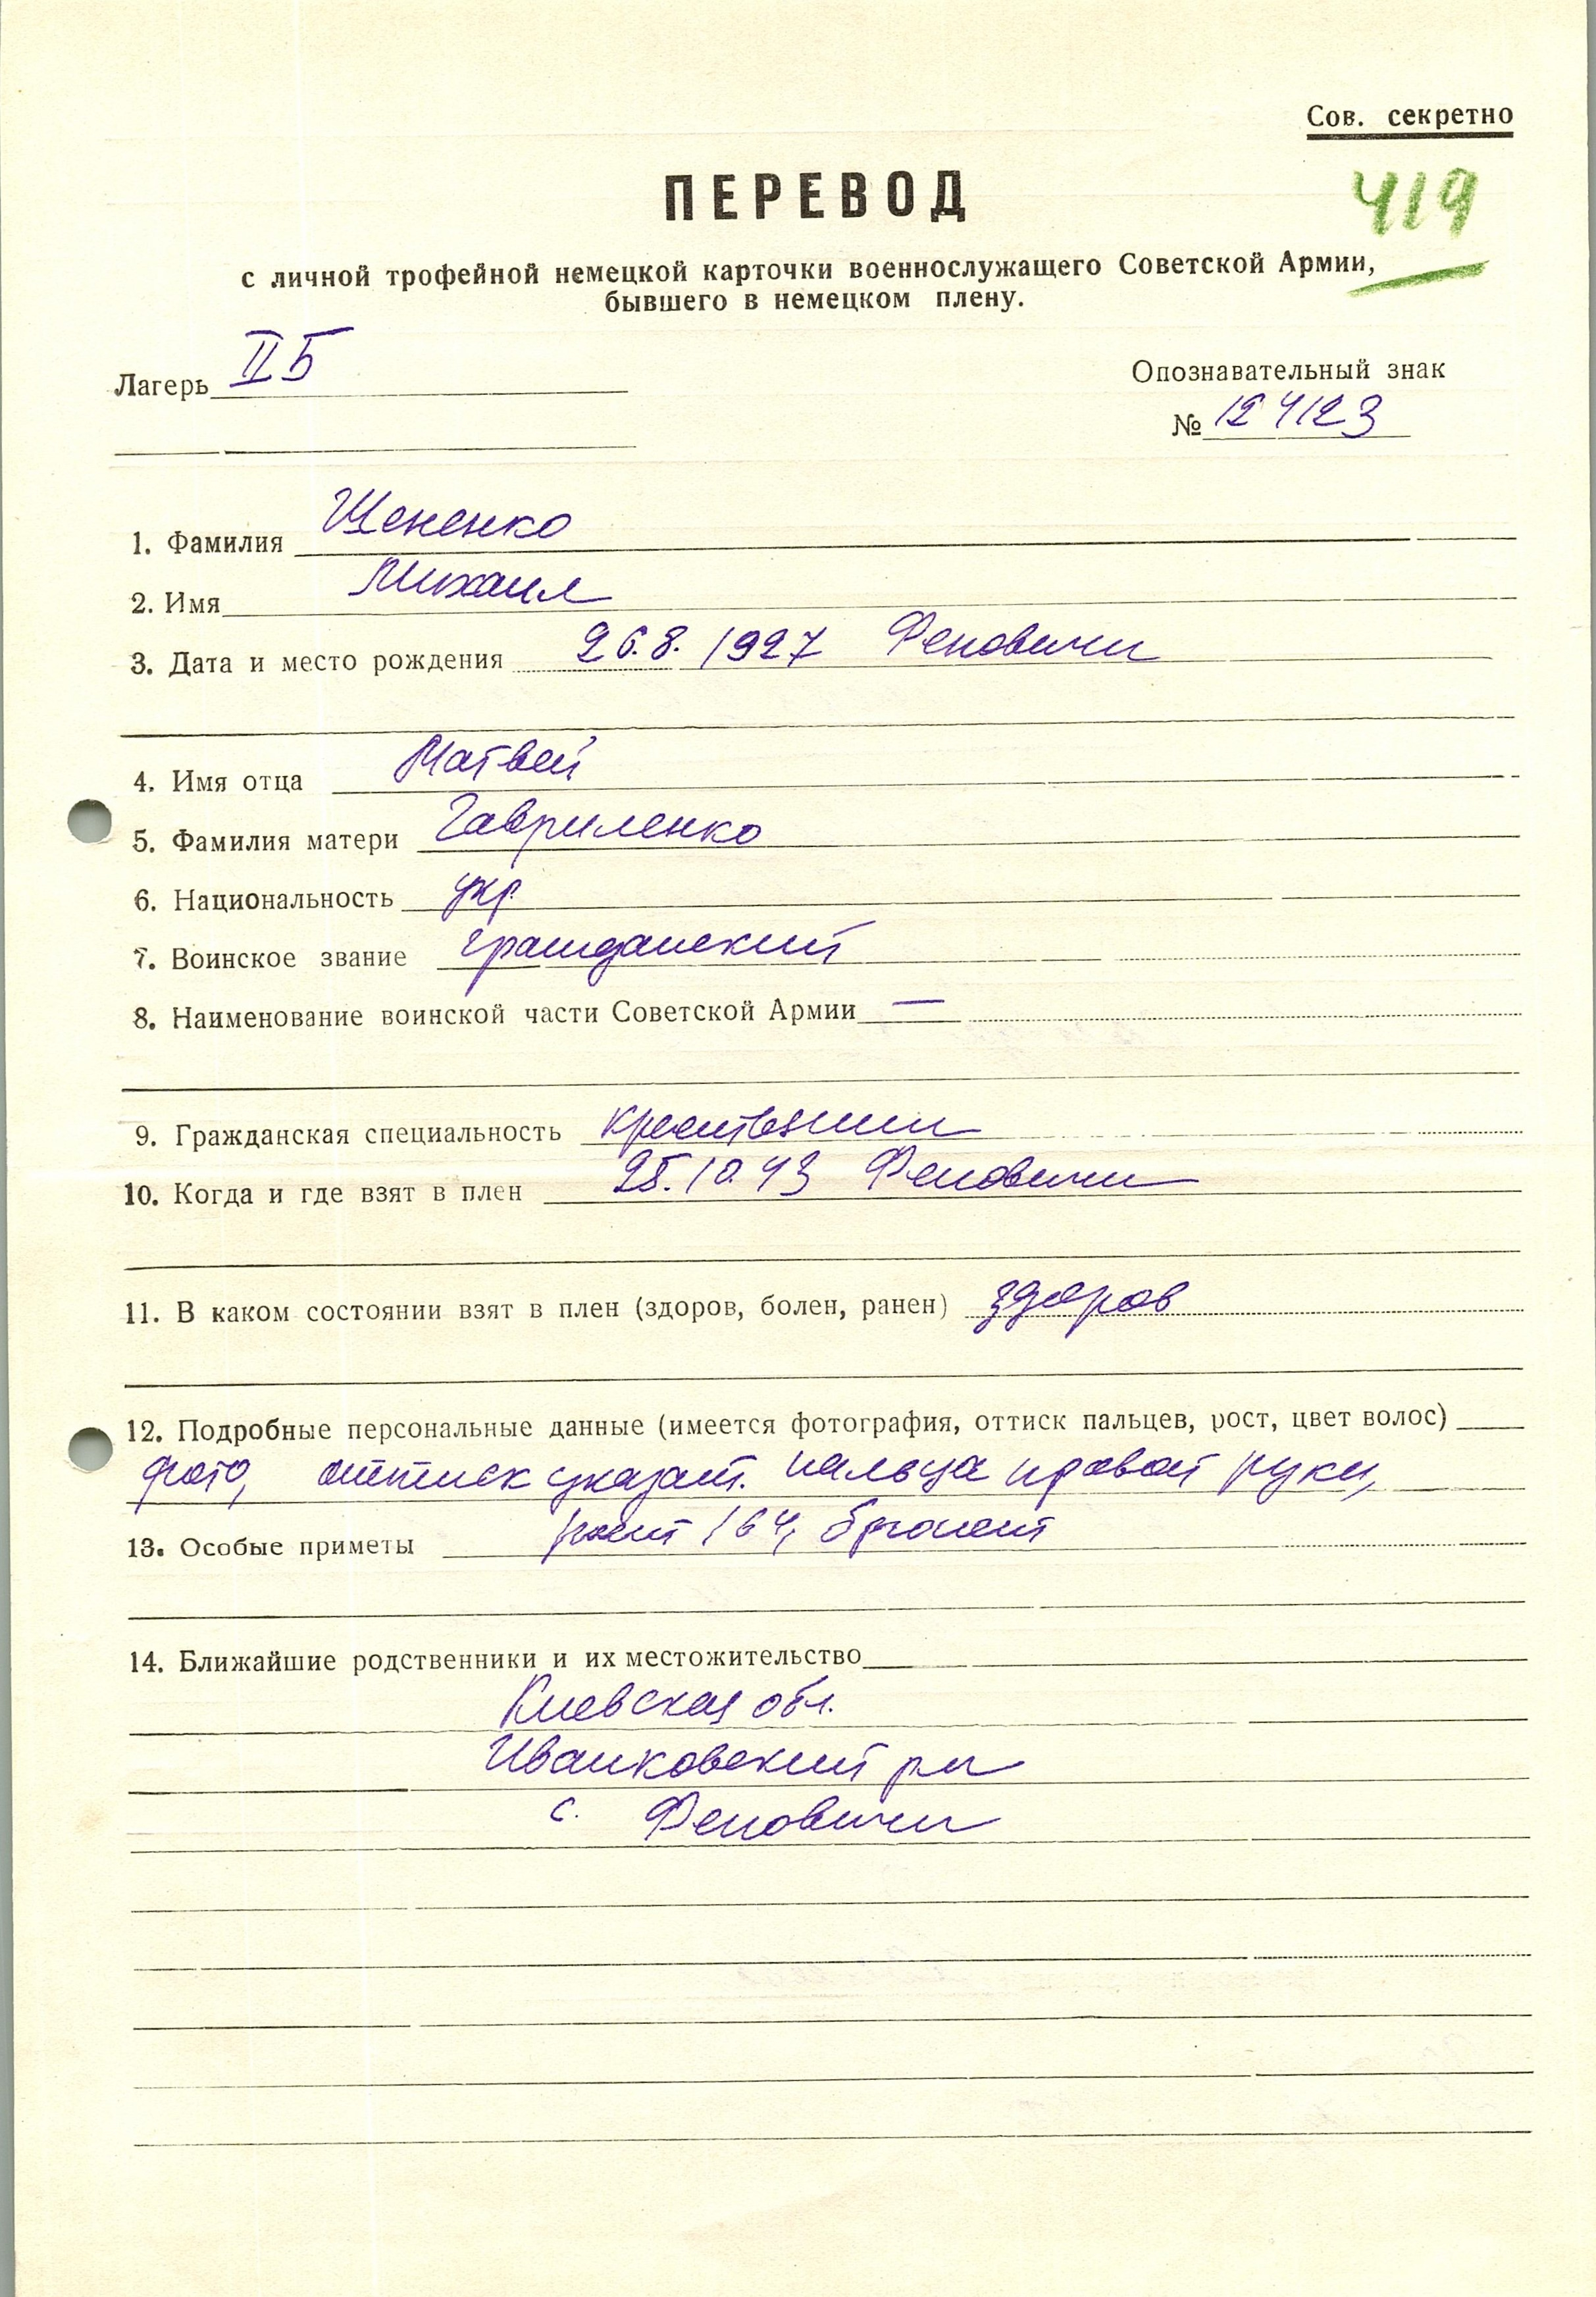 Сов. секретно
ПЕРЕВОД
419
с личной трофейной немецкой карточки военнослужащего Советской Армии,
бывшего в немецком плену.
Лагерь IIБ
Опознавательный знак
№ 124123
1. Фамилия Щененко
2. Имя Михаил
3. Дата и место рождения 26.8.1927 Феновичи
4. Имя отца Матвей
5. Фамилия матери Гавриленко
6. Национальность укр.
7. Воинское звание гражданский
8. Наименование воинской части Советской Армии —
9. Гражданская специальность крестьянин
10. Когда и где взят в плен 25.10.43 Феновичи
11. В каком состоянии взят в плен (здоров, болен, ранен) здоров
12. Подробные персональные данные (имеется фотография, оттиск пальцев, рост, цвет волос)
фото, оттиск указат. пальца правой руки,
13. Особые приметы рост 164, брюнет
14. Ближайшие родственники и их местожительство
Киевская обл.
Иванковский рн
с. Феновичи